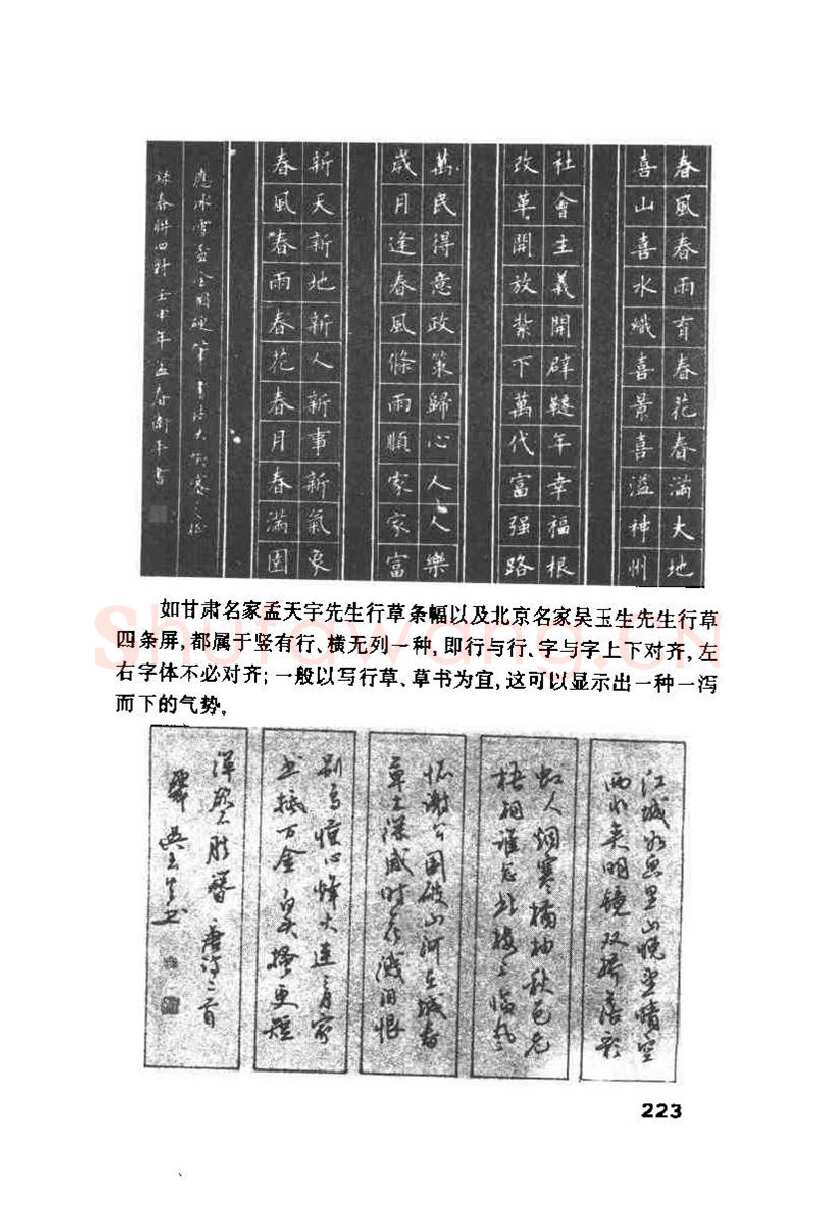 春風春雨育春花春滿大地
喜山喜水織喜景喜溢神州
社會主義開辟韆年幸福根
改革開放紮下萬代富强路
萬民得意政策歸心人人樂
歲月逢春風條雨順家家富
新天新地新人新事新氣象
春風春雨春花春月春滿園
應冰雪盃全国硬筆書法大賽之征
詠春聯四對壬申年孟春衛平書
如甘肃名家孟天宇先生行草条幅以及北京名家吴玉生先生行草
四条屏,都属于竖有行、横无列一种,即行与行、字与字上下对齐,左
右字体不必对齐;一般以写行草、草书为宜,这可以显示出一种一泻
而下的气势。
江城如畫里山晚望晴空
兩水夹明镜双橋落彩
虹人烟寒橘柚秋色老
梧桐谁念北楼上临风
怀谢公国破山河在城春
草木深感时花溅泪恨
别鸟惊心烽火连三月家
书抵万金白头搔更短
渾欲不胜簪唐诗二首
吴玉生书
223
Shufawang.CN